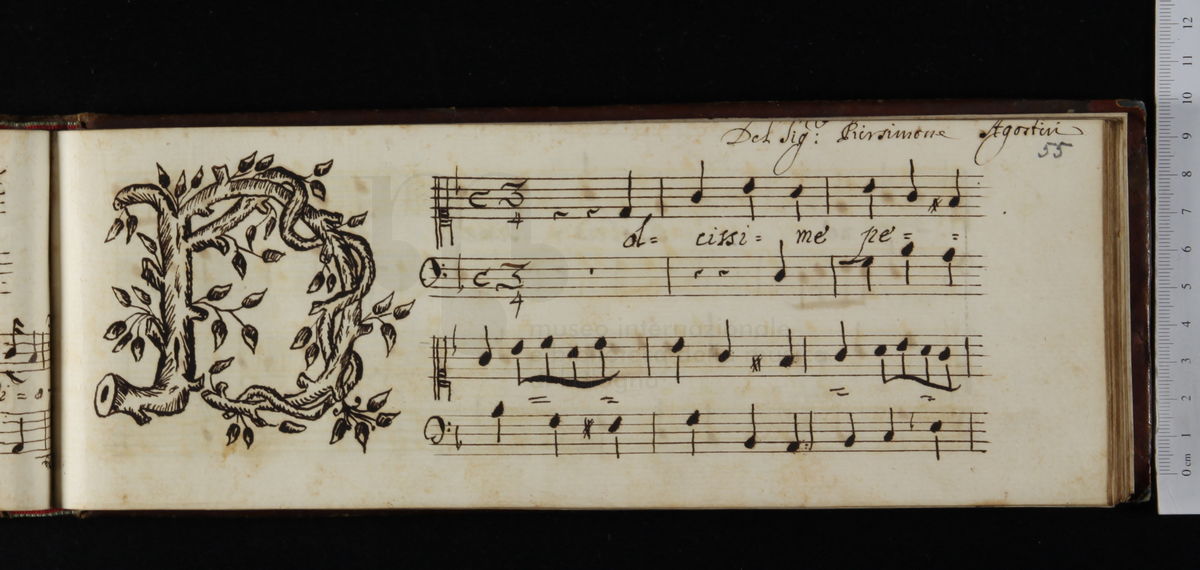 Del Sig.r Piersimone Agostini
55
D
C 3/4
ol= cissi= me pe= =
C 3/4
museo internazionale
12
11
10
9
8
7
6
5
4
3
2
1
0 cm